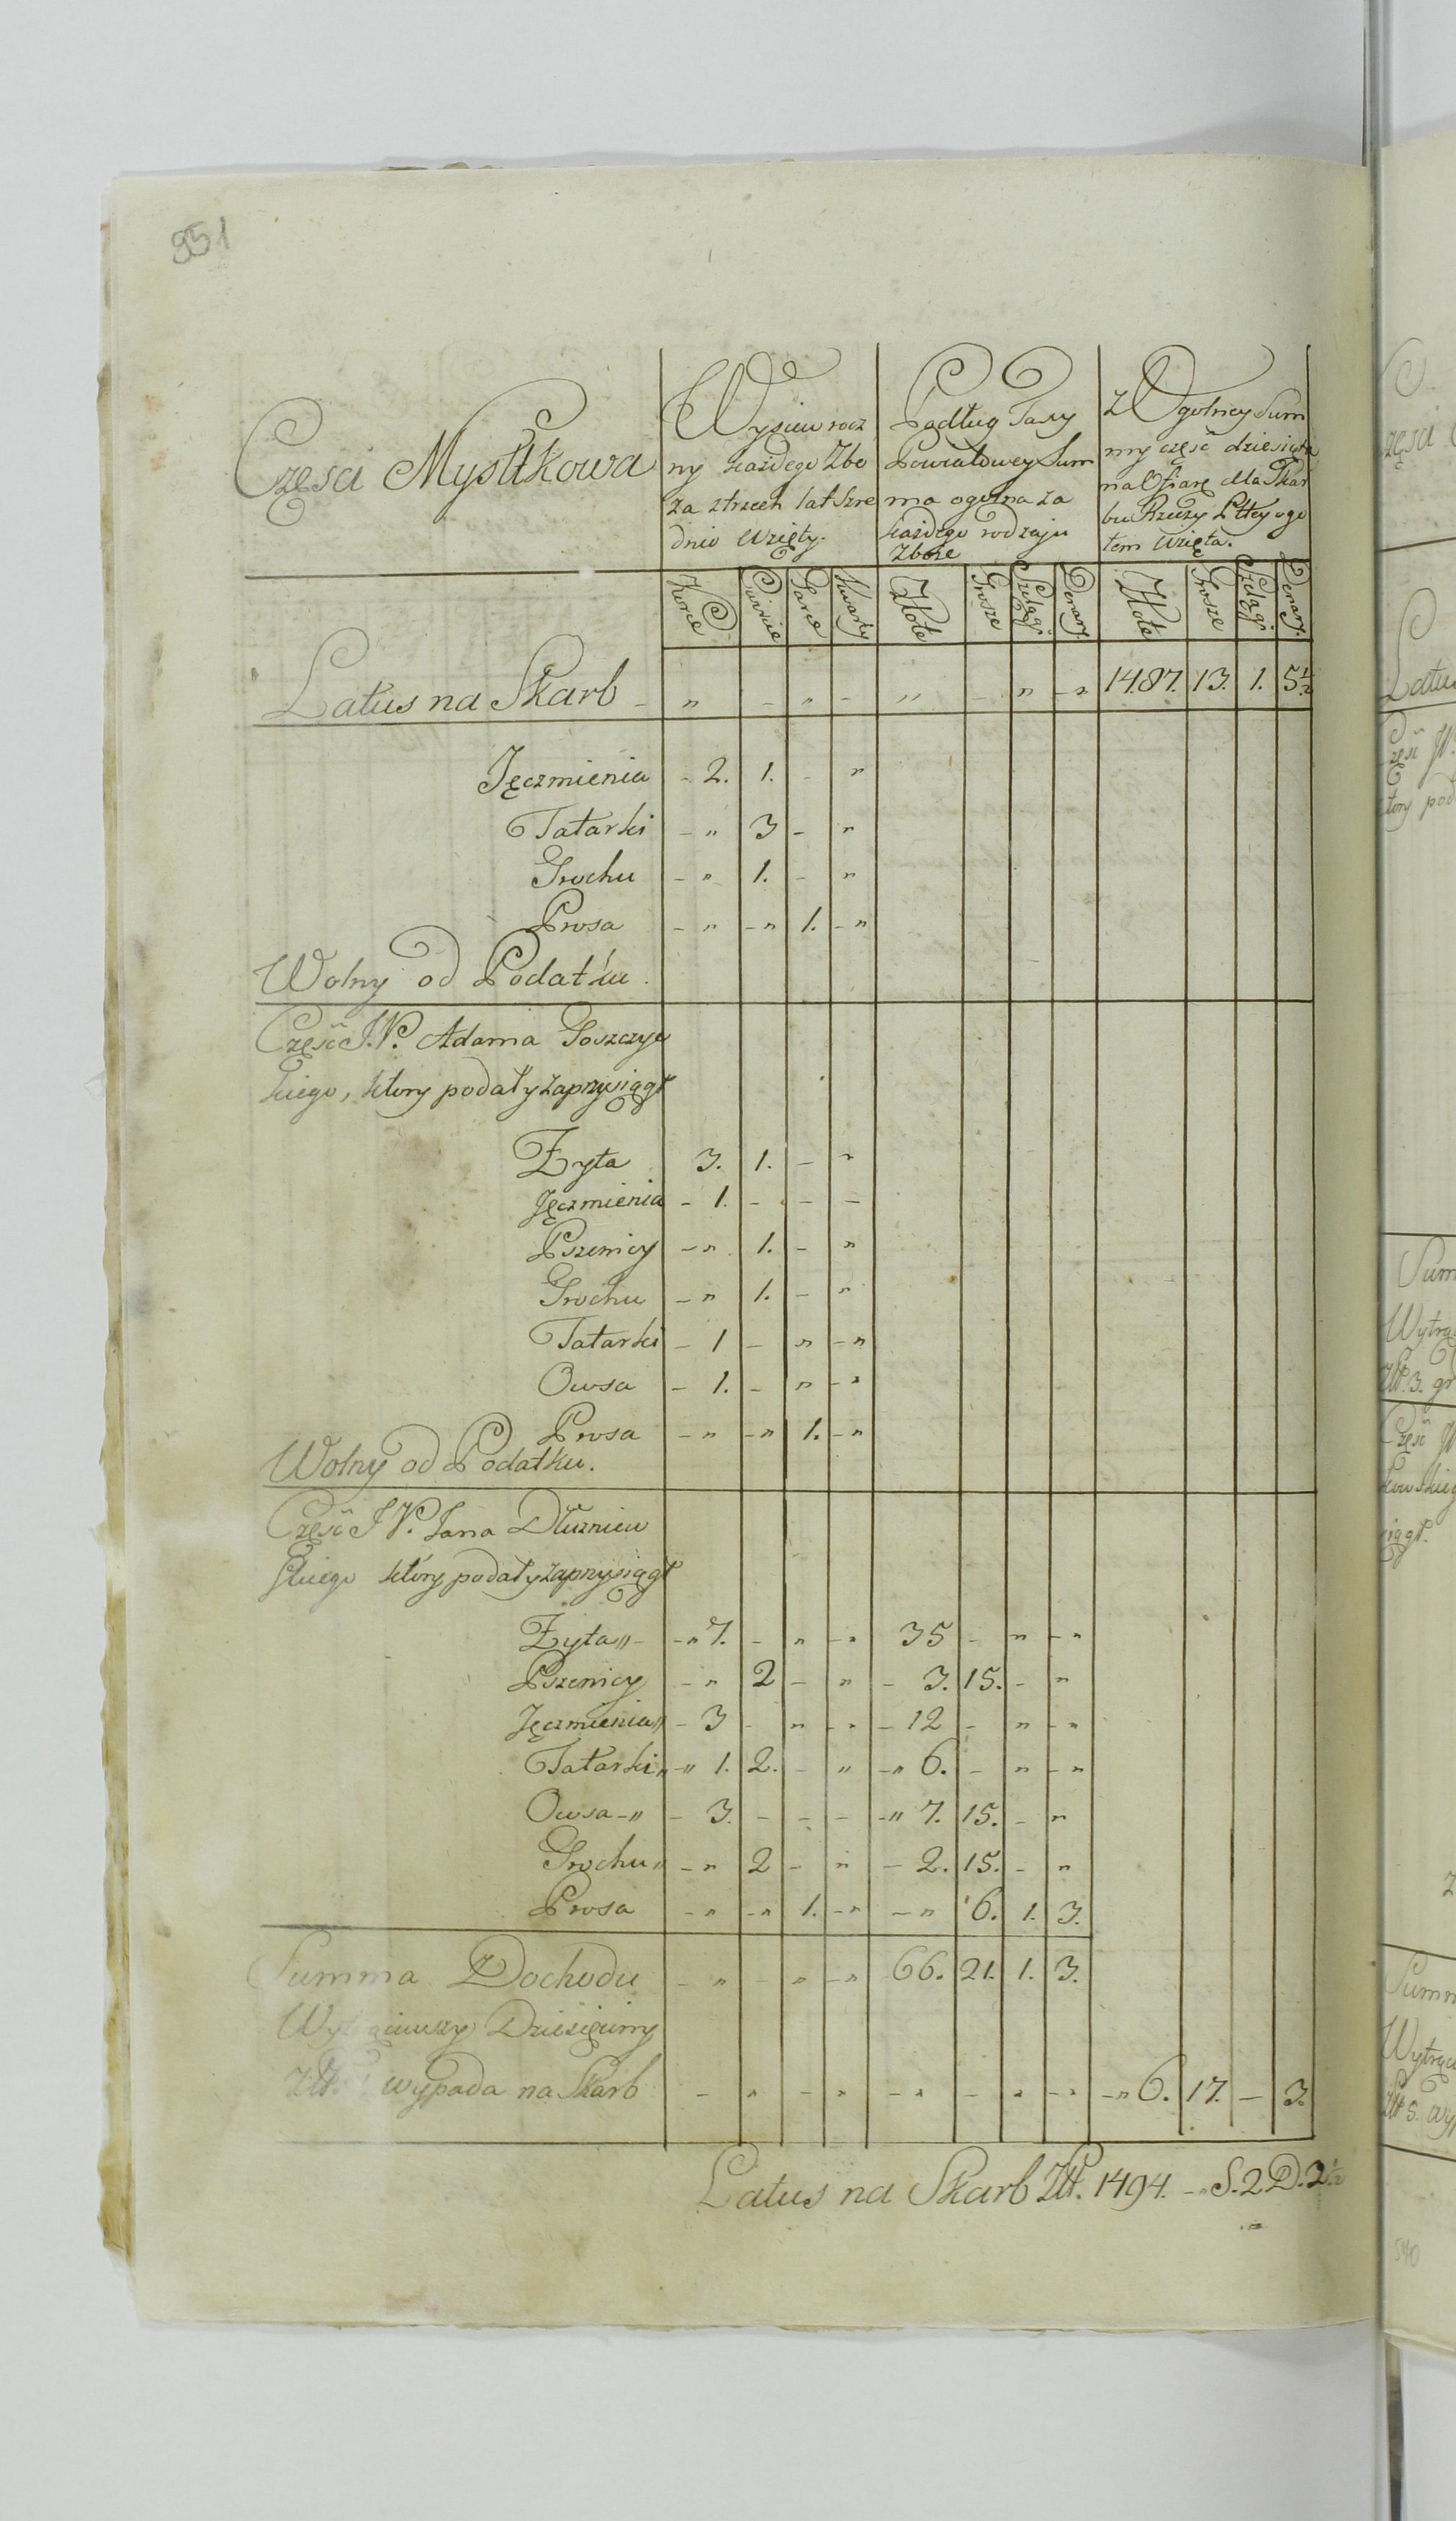 951
Częsci Mystkowa
Wysiew rocz
ny każdego Zbo
za ztrzech lat szre
dnio wzięty.
Podług Taxy
Powiatowey Sum
ma ogolna za
każdego rodzaju
Zboże
Z Ogolney Sum
my część dziesięta
na Ofiarę dla Skar
bu Rzeczy Pltey ogo
łem wzięta.
Korce Cwircie Garce Kwarty Złote Grosze Szelągi Denary Złote Grosze Szelągi Denary
Latus na Skarb - " - " - " - " - " 1487. 13. 1. 5½
Jęczmienia - 2. 1. - "
Tatarki - " 3 - "
Grochu - " 1. - "
Prosa - " - " 1. - "
Wolny od Podatku.
Część J.P. Adama Goszczyc
kiego, ktory podał y zaprzysiągł
Zyta 3. 1. - "
Jęczmienia - 1. - - -
Pszenicy - " 1. - "
Grochu - " 1. - "
Tatarki - 1 - " - "
Owsa - 1. - " - "
Prosa - " - " 1. - "
Wolny od Podatku.
Część J P. Jana Dłużniew
skiego ktory podał y zaprzysiągł
Zyta " - - " 7. - " - " 35 - " - "
Pszenicy - " 2 - " - 3. 15. - "
Jęczmienia " - 3 - " - " - 12 - " - "
Tatarki " - " 1. 2. - " - " 6. - " - "
Owsa - " - 3. - - - - " 7. 15. - "
Grochu " - " 2 - " - 2. 15. - "
Prosa - " - " 1. - " - " 6. 1. 3.
Summa Dochodu - " - " - " 66. 21. 1. 3.
Wytrąciwszy Dziesięciny
Złt. wypada na Skarb - " - " - " - " - " - " 6. 17. - 3.
Latus na Skarb Złt. 1494. - " S. 2 D. 2½
540